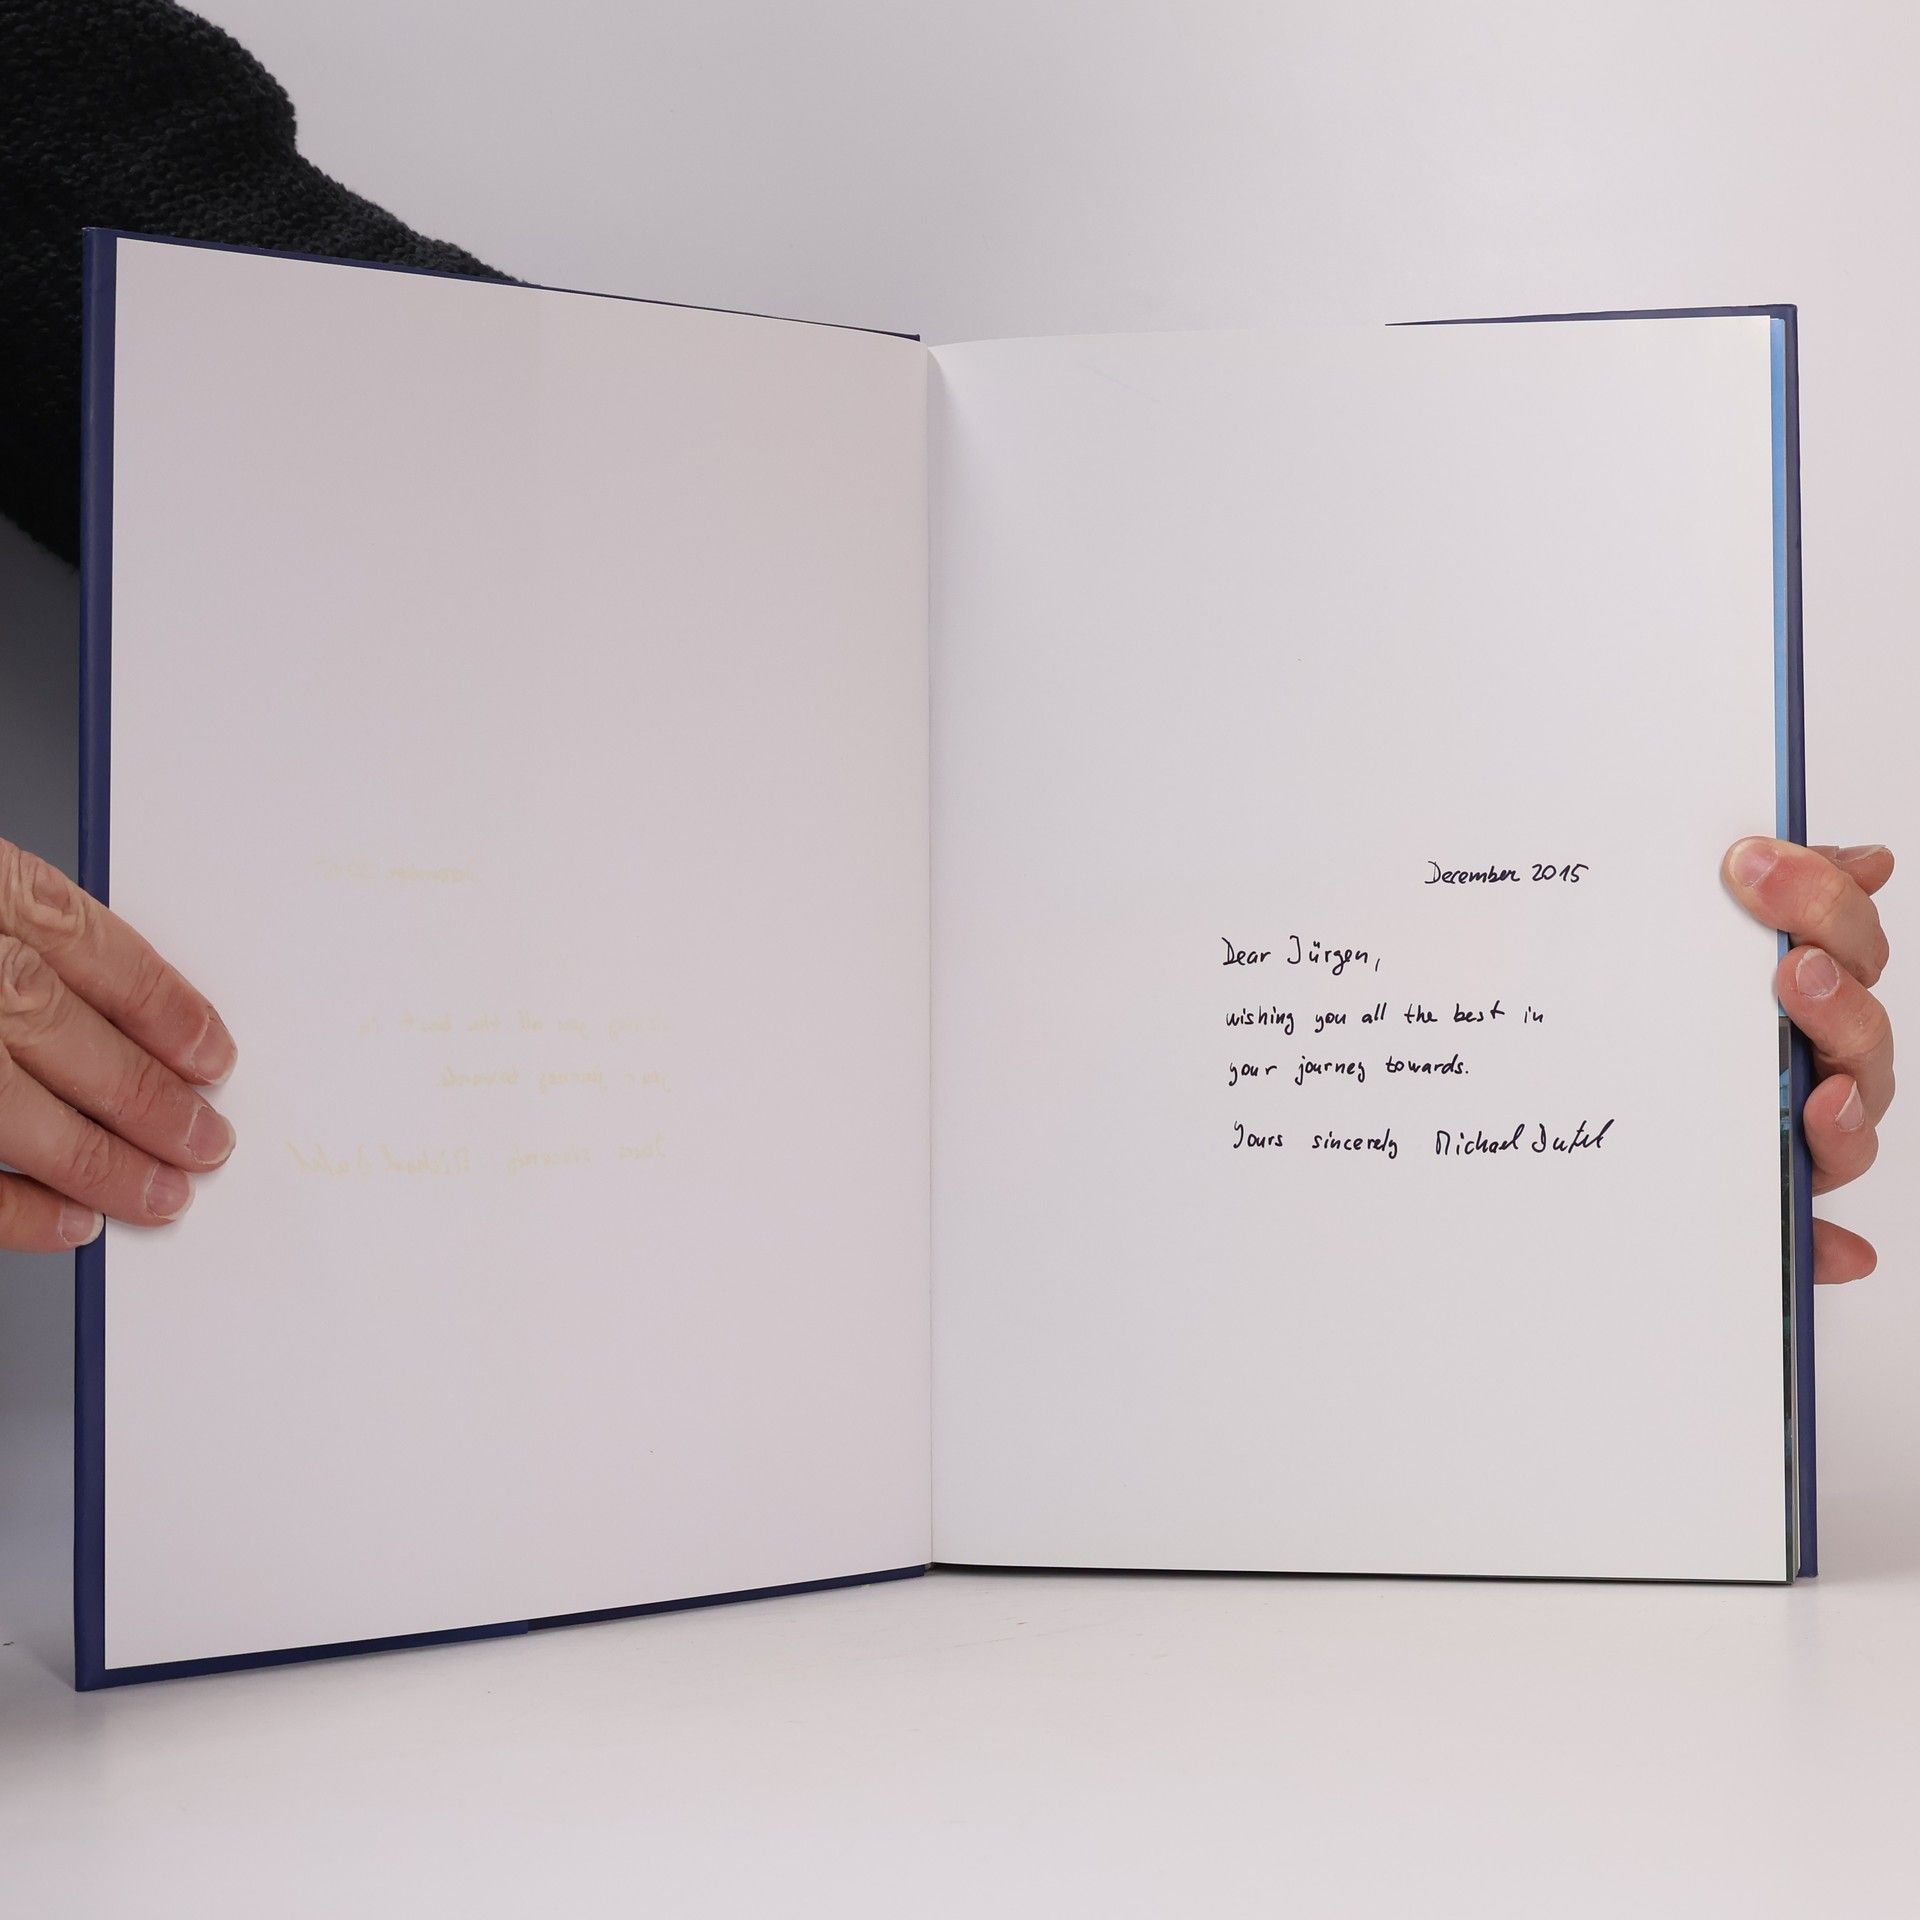 December 2015
Dear Jürgen,
wishing you all the best in
your journey towards.
Yours sincerely Michael